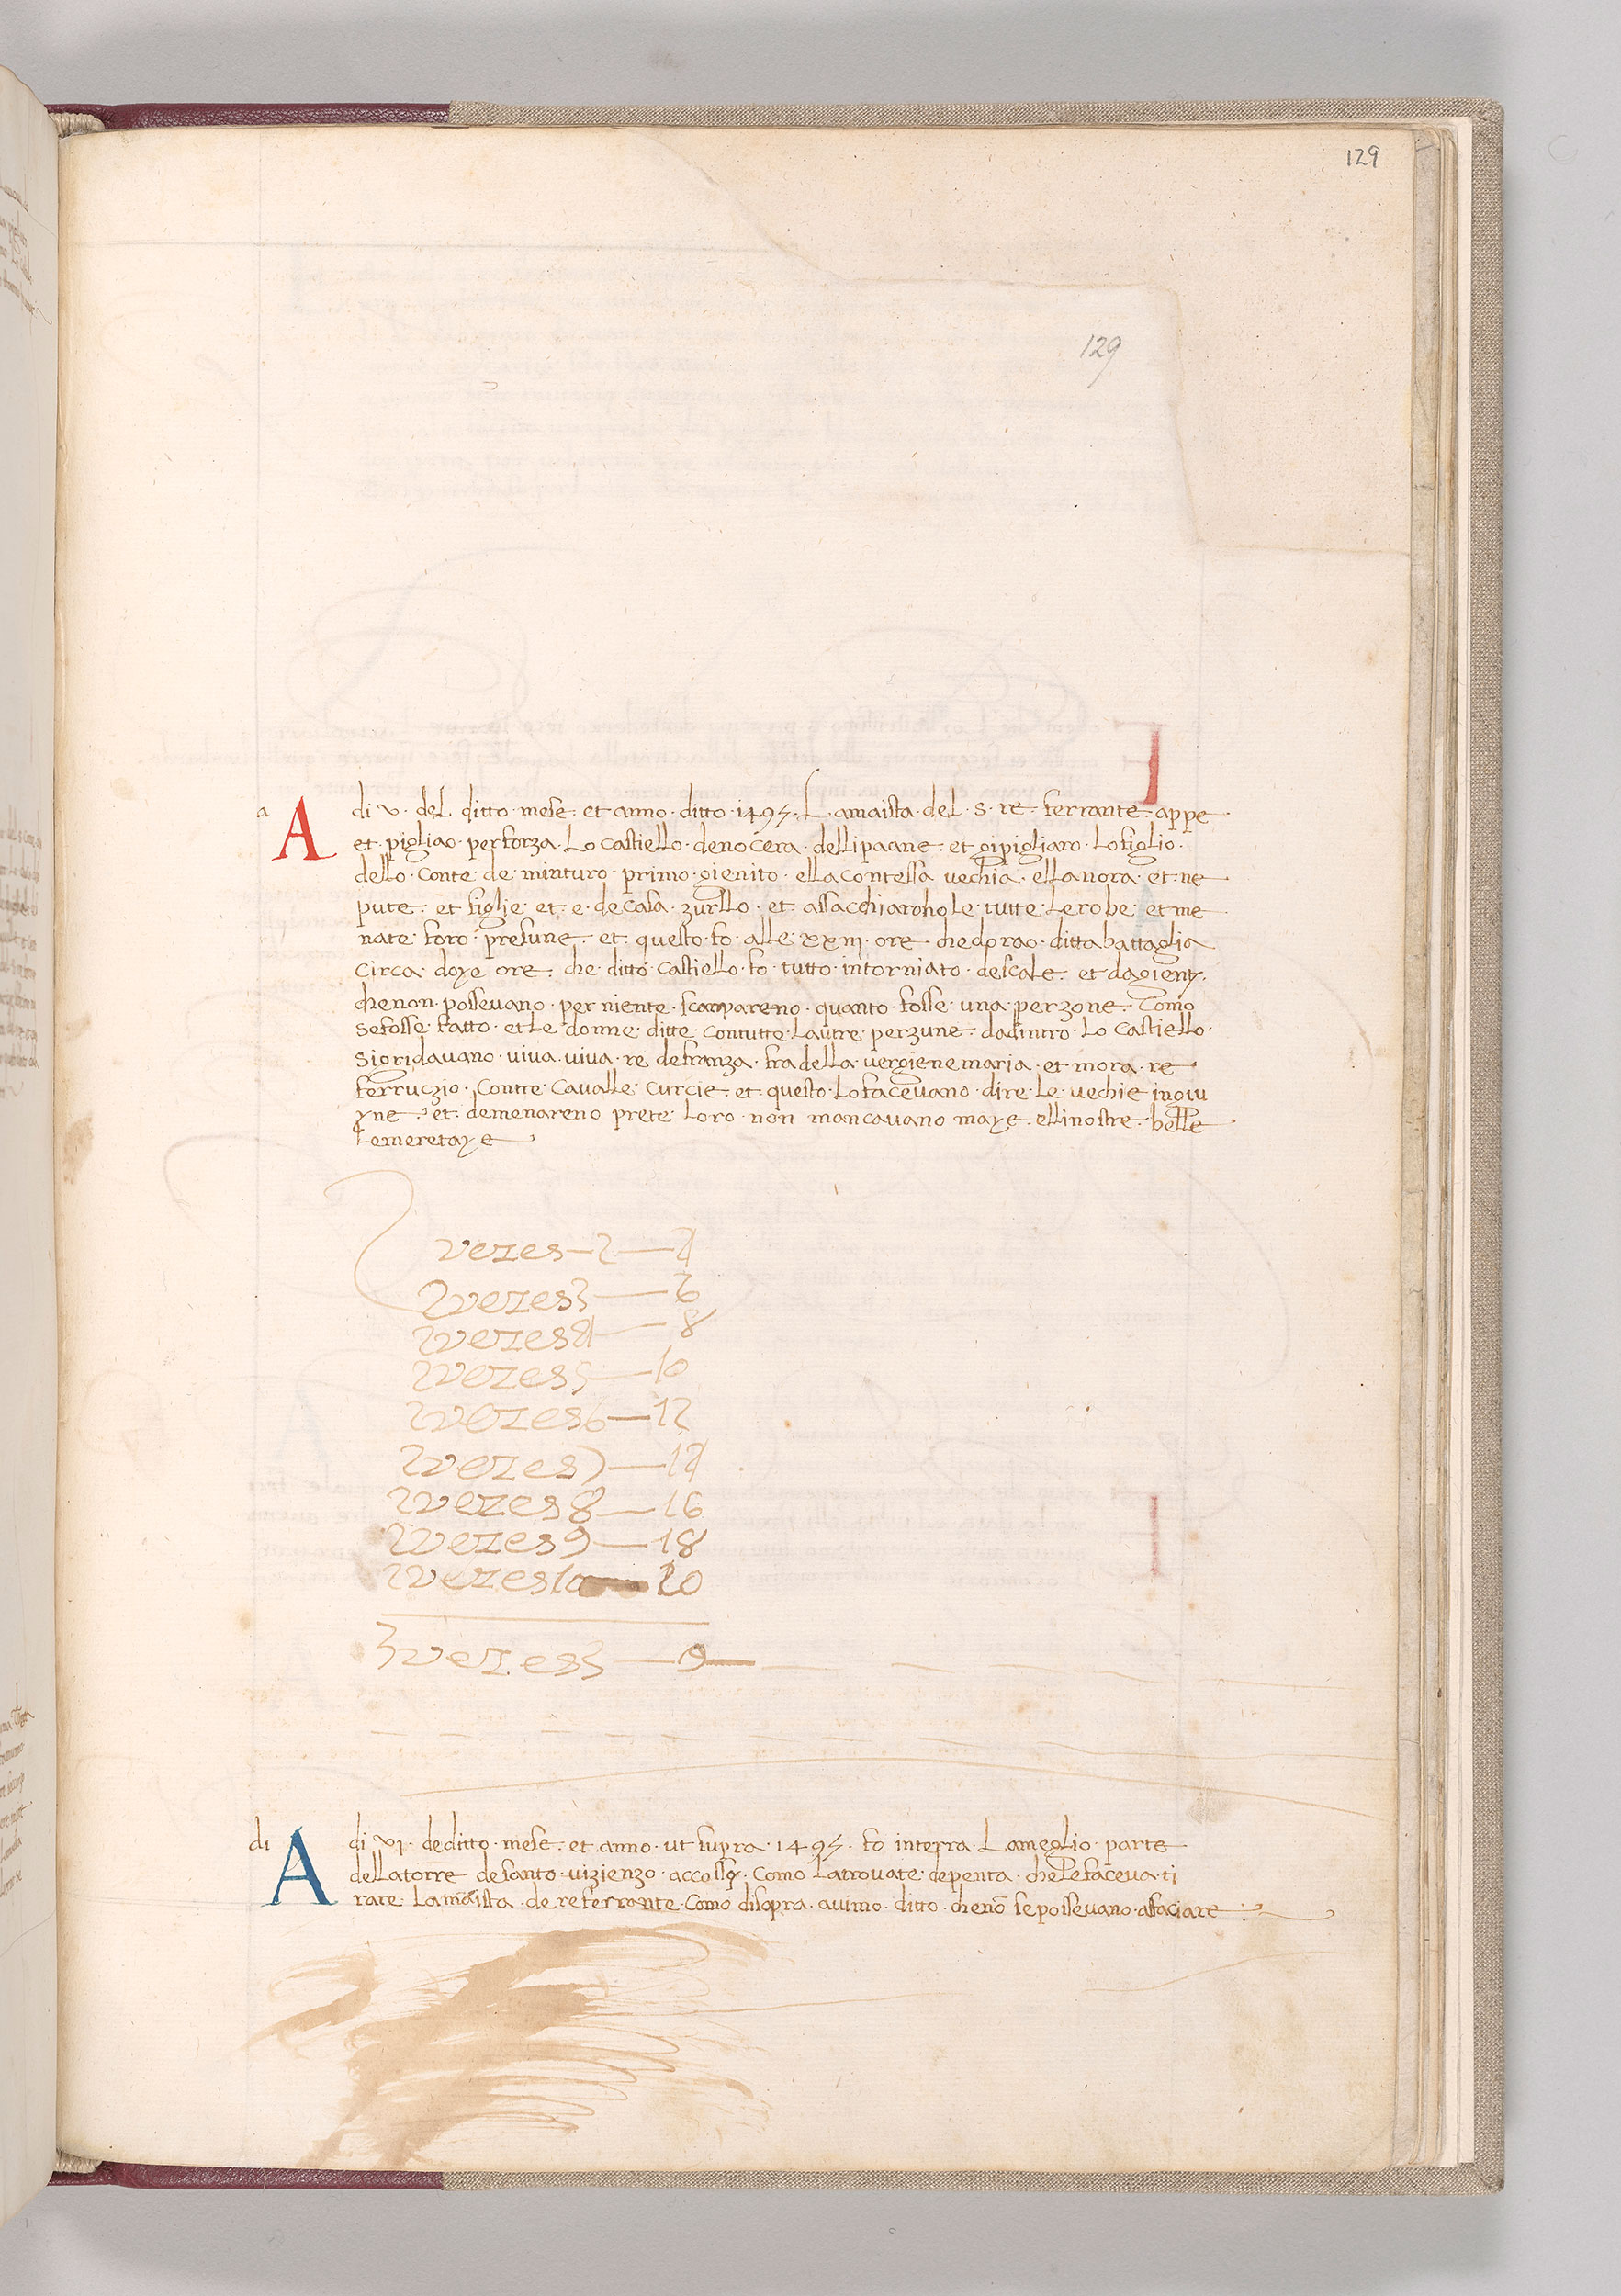 129
129
a A di v · del ditto · mese · et anno · ditto · 1495 · L · amaista · del · s · re · ferrante · appe ·
et · pigliao · per forza · Lo castiello · de nocera · delli paane · et gi pigliaro · Lo figlio ·
dello · Conte · de · minturo · primo · gienito · ella contessa vechia · ella nora · et · ne
pute · et figlie · et · e · de casa · zurllo · et · assacchiaroho le · tutte · Le robe · et me
nate · foro · presune · et · questo · fo · alle · xxiii · ore · che dorao · ditta battaglia
circa · doye ore · che · ditto · castiello · fo · tutto · intorniato · de scale · et da gienty ·
che non · possevano · per niente · scampareno · quanto · fosse · una · perzone · Como
se fosse · fatto · et Le · donne · ditte · con tutte · Lautre · perzune · da dintro · Lo castiello ·
si gridavano · viva · viva · re de franza · fra della · vergiene maria · et mora · re
ferruczio · Contre · Cavalle · curcie · et · questo · Lo facevano · dire · Le · vechie in giu
yne · et · de menareno prete · Loro · non mancavano maye · elli nostre · belle
Lemeretaye
vezes — 2 — 4
2 vezes 3 — 6
2 vezes 4 — 8
2 vezes 5 — 10
2 vezes 6 — 12
2 vezes 7 — 14
2 vezes 8 — 16
2 vezes 9 — 18
2 vezes 10 — 20
3 vezes 3 — 9 —
di A di vi · de ditto · mese · et anno · ut supra · 1495 · fo interra · La meglio · parte
della torre de santo · vizienzo · Como La trovate · depenta · che Le faceva · ti
rare · La maista · de re ferrante · Como disopra · avimo · ditto · che nō se possevano · affaciare